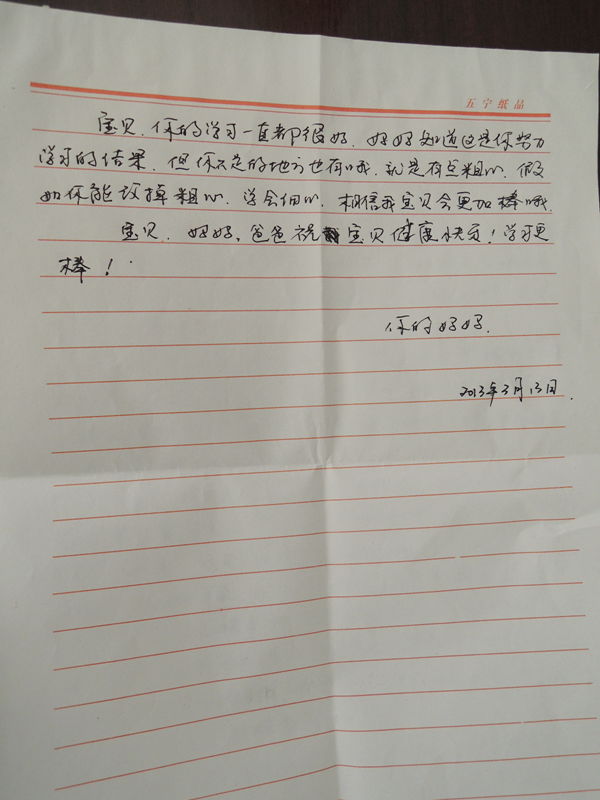 五宁纸品
宝贝，你的学习一直都很好，妈妈知道这是你努力
学习的结果，但你不足的地方也有哦，就是有点粗心，假
如你能改掉粗心，学会细心，相信我宝贝会更加棒哦。
宝贝，妈妈，爸爸祝宝贝健康快乐！学习更
棒！
你的妈妈.
2013年3月13日.